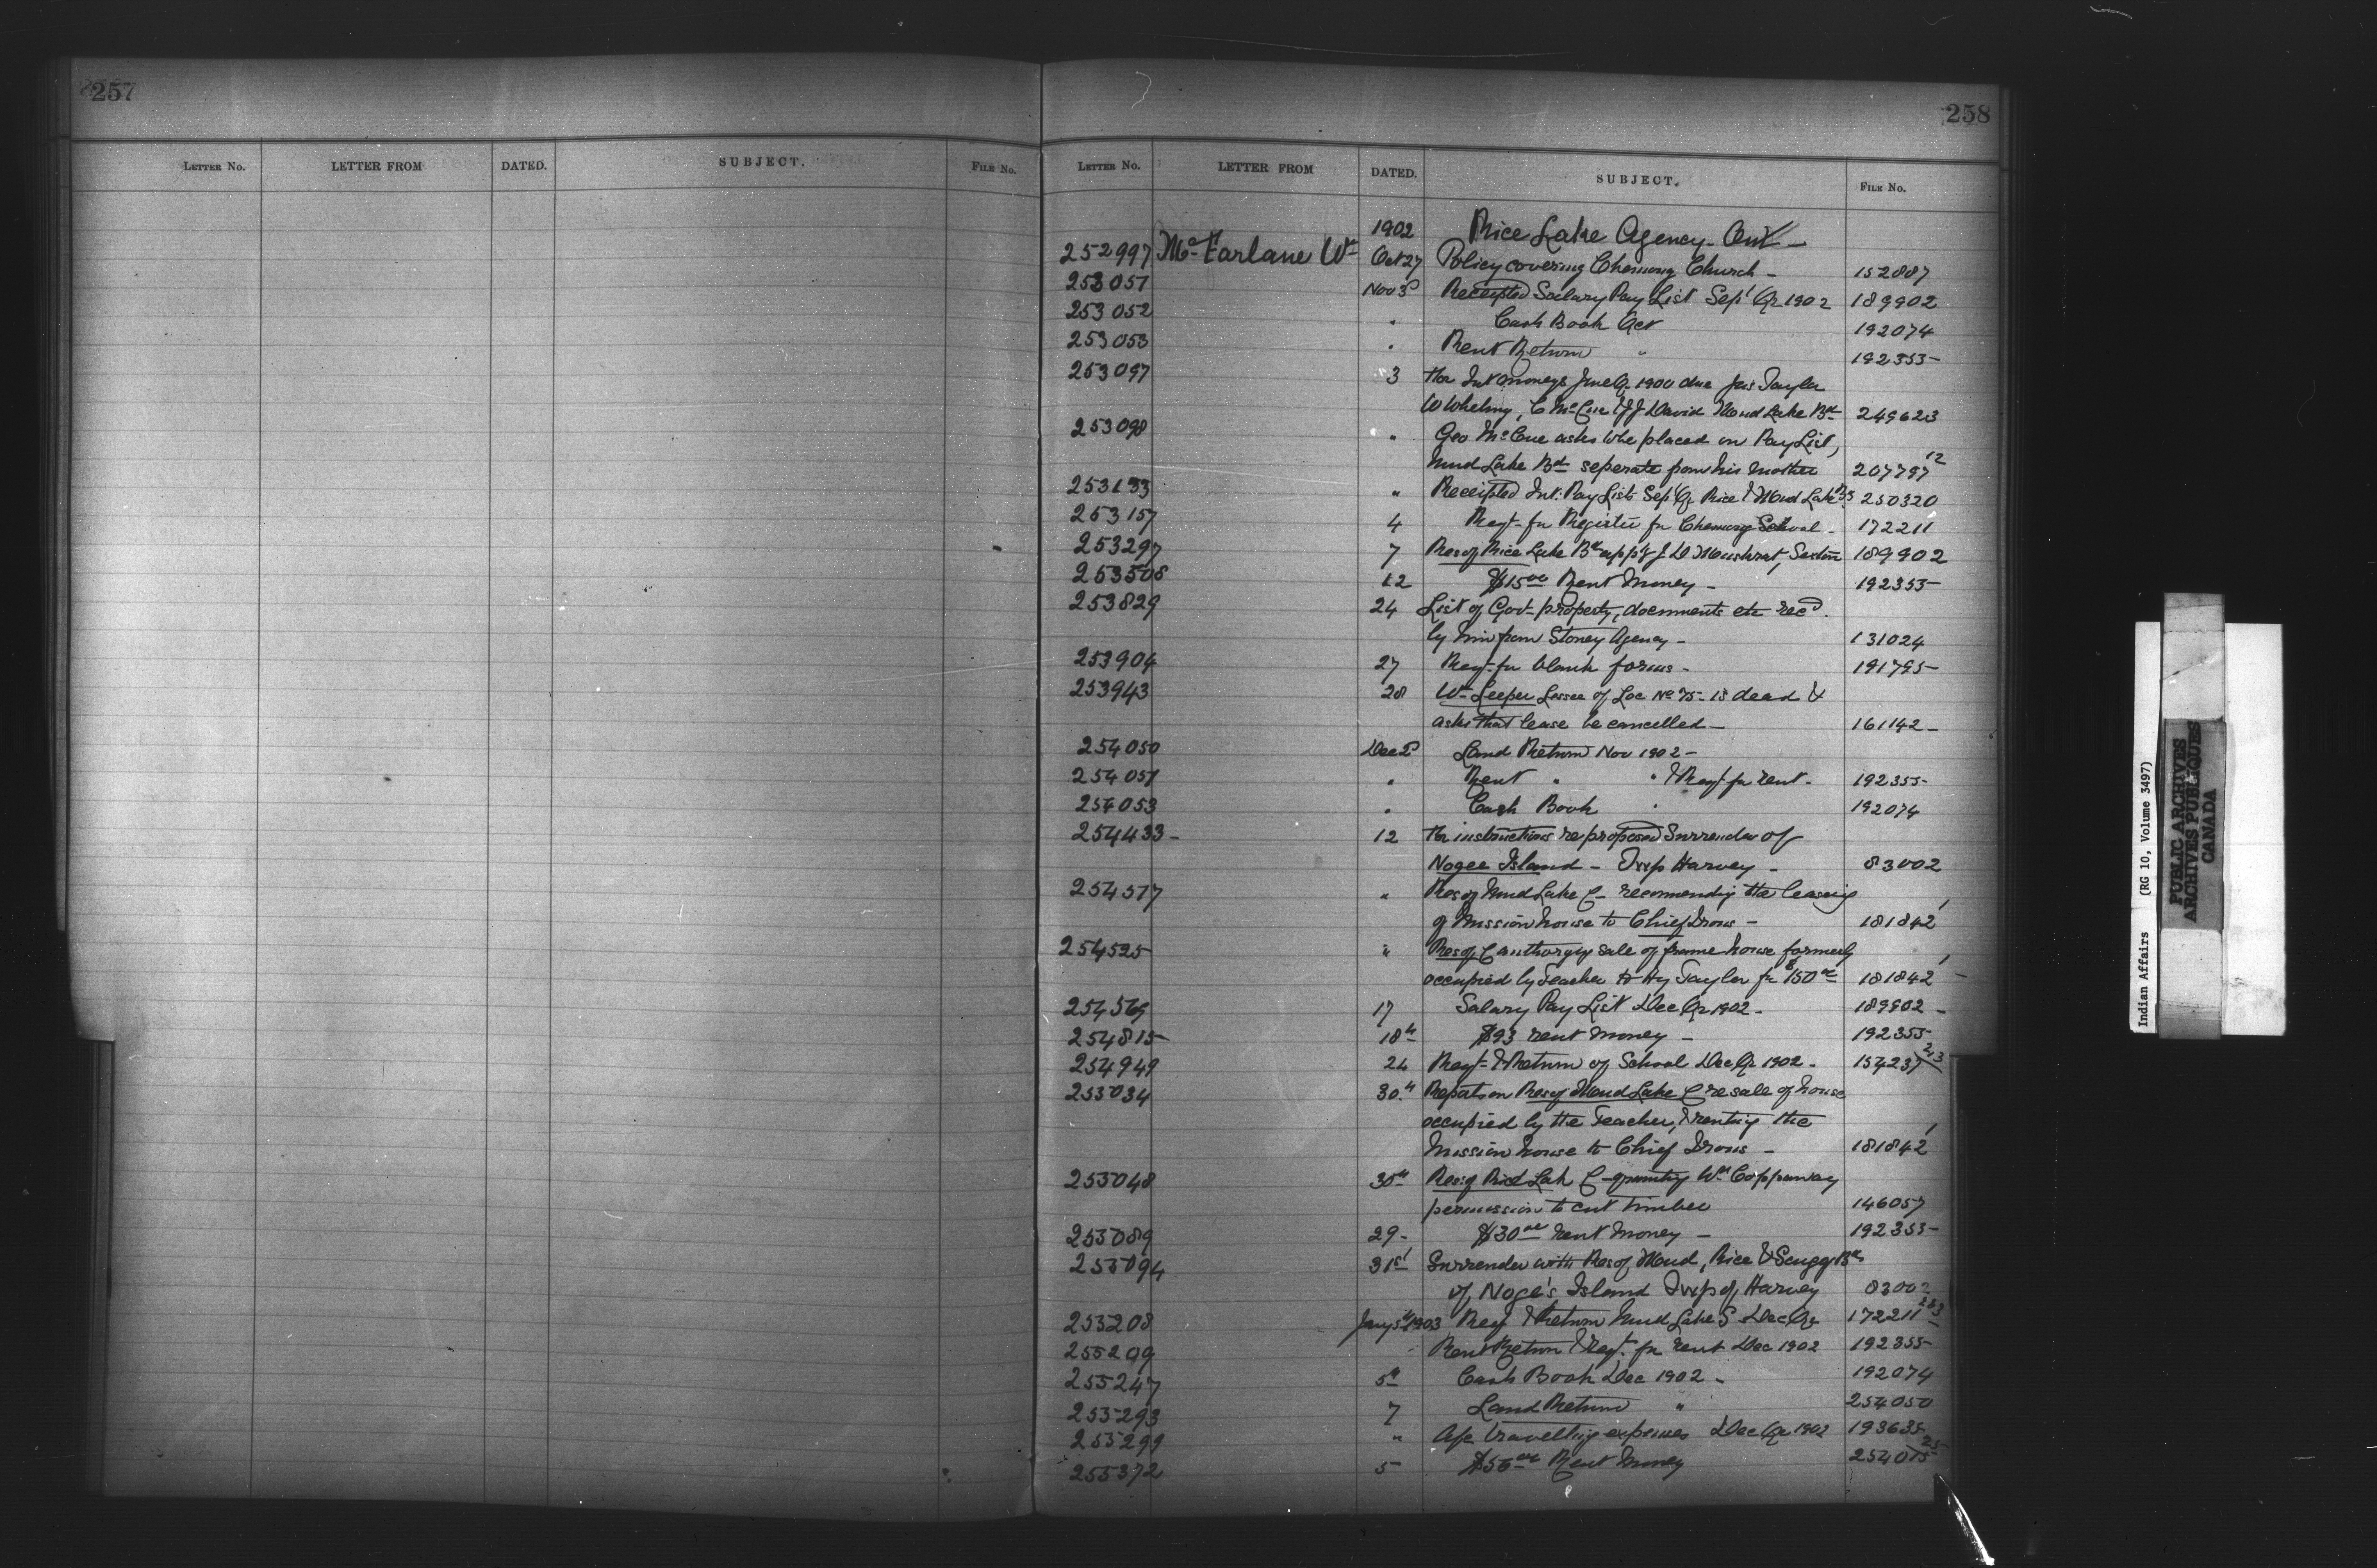 257
258
LETTER No. LETTER FROM DATED. SUBJECT. FILE No.
LETTER No. LETTER FROM DATED. SUBJECT. FILE No.
1902 Rice Lake Agency - Ont -
252997 McFarlane Wm Oct 27 Policy covering Chemong Church - 152887
253051 Nov 3d Receipted Salary Pay List Sept Qr 1902 189902
253052 " Cash Book Oct 192074
253053 " Rent Return " 192355
253097 3 the Int moneys June Qr 1900 due Jas Taylor
W Whetung, C McCue & J J David Mud Lake Bd 249623
253098 " Geo McCue asks to be placed on Pay List,
Mud Lake Bd seperate from his mother 207797 12
253133 " Receipted Int: Pay Lists Sept Qr Rice & Mud Lake Bds 250320
253157 4 Reqt for Register for Chemong School - 172211
253297 7 Res of Rice Lake Bd app'g J D Muskrat, Sexton 189902
253508 12 $15 00 Rent Money - 192355
253829 24 List of Govt property, documents etc rec'd
by him from Stoney Agency - 131024
253904 27 Reqt for blank forms - 191795
253943 28 Wm Leeper Lessee of Loc No 75 - is dead &
asks that lease be cancelled - 161142 -
254050 Dec 2d Land Return Nov 1902 -
254051 " Rent " " & Reqt for rent - 192355
254053 " Cash Book " 192074
254433 - 12 for instructions re proposed Surrender of
Nogee Island - Twp Harvey - 83002
254517 " Res of Mud Lake C - recomending the leasing
of Mission house to Chief Irons - 181842 1
254525 " Res of C authorzng sale of frame house formerly
occupied by Teacher to Hy Taylor for $150 00 181842 1 -
254569 17 Salary Pay List Dec Qr 1902 - 189902 -
254815 18th $93 rent money - 192355
254949 24 Reqt & Return of School Dec Qr 1902 - 154237 213
255034 30th Reports on Res of Mud Lake C re sale of house
occupied by the Teacher, & renting the
Mission house to Chief Irons - 181842 1
255048 30th Res: of Rice Lake C - granting Wm Coppaway
permission to cut timber 146057
255089 29 - $30 00 rent money - 192355
255094 31st Surrender with Res of Mud, Rice & Scugog Bds
of Noge's Island Twp of Harvey 83002
255208 Jany 5th 1903 Reqt & Return Mud Lake S Dec Qr 172211 253
255209 Rent Return & reqt. for rent Dec 1902 192355
255247 5th Cash Book Dec 1902 - 192074
255293 7 Land Return " 254050
255299 " A/c travelling expenses Dec Qr 1902 193635
255372 5 $56 00 Rent Money 254075 25
Indian Affairs (RG 10, Volume 3497)
PUBLIC ARCHIVES
ARCHIVES PUBLIQUES
CANADA